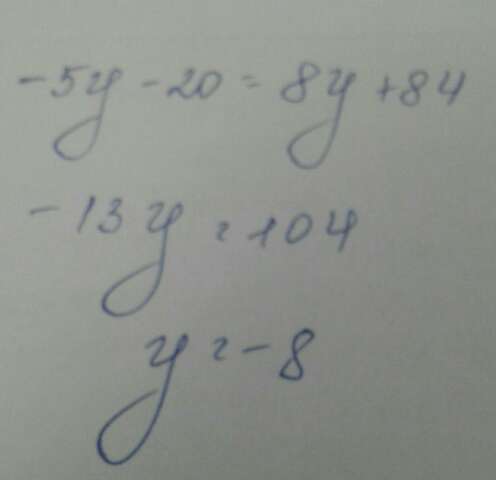 -5y - 20 = 8y + 84
-13y = 104
y = -8